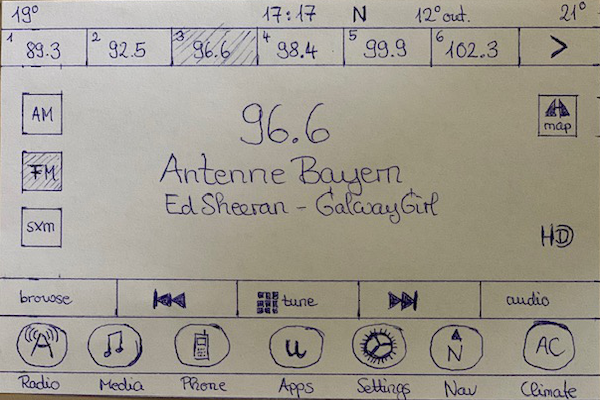 19° 17:17 N 12° out. 21°
1 89.3 2 92.5 3 96.6 4 98.4 5 99.9 6 102.3 >
AM
FM
sxm
map
96.6
Antenne Bayern
Ed Sheeran - Galway Girl
HD
browse tune audio
u N AC
Radio Media Phone Apps Settings Nav Climate